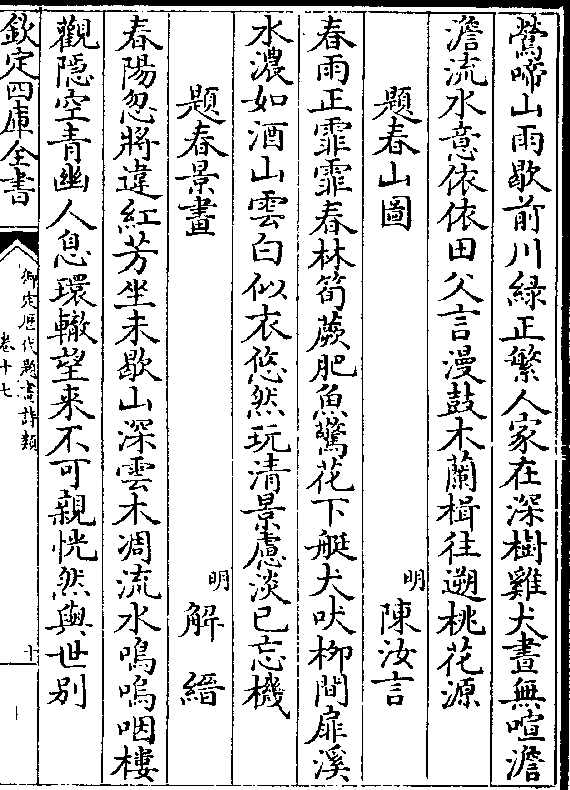 鶯啼山雨歇前川緑正繁人家在深樹雞犬晝無喧澹
澹流水意依依田父言漫鼓木蘭楫往遡桃花源
題春山圖
明
陳汝言
春雨正霏霏春林筍蕨肥魚驚花下艇犬吠栁間扉溪
水濃如酒山雲白似衣悠然玩清景慮淡已忘機
題春景畫
明
解縉
春陽忽將違紅芳坐未歇山深雲木凋流水鳴嗚咽樓
觀隠空青幽人息環轍望来不可親恍然與世别
欽定四庫全書
御定歴代題畫詩類
卷十七
十